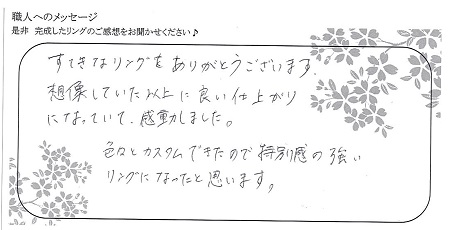 職人へのメッセージ
是非 完成したリングのご感想をお聞かせください♪
すてきなリングをありがとうございます.
想像していた以上に良い仕上がり
になっていて、感動しました。
色々とカスタムできたので特別感の強い
リングになったと思います。